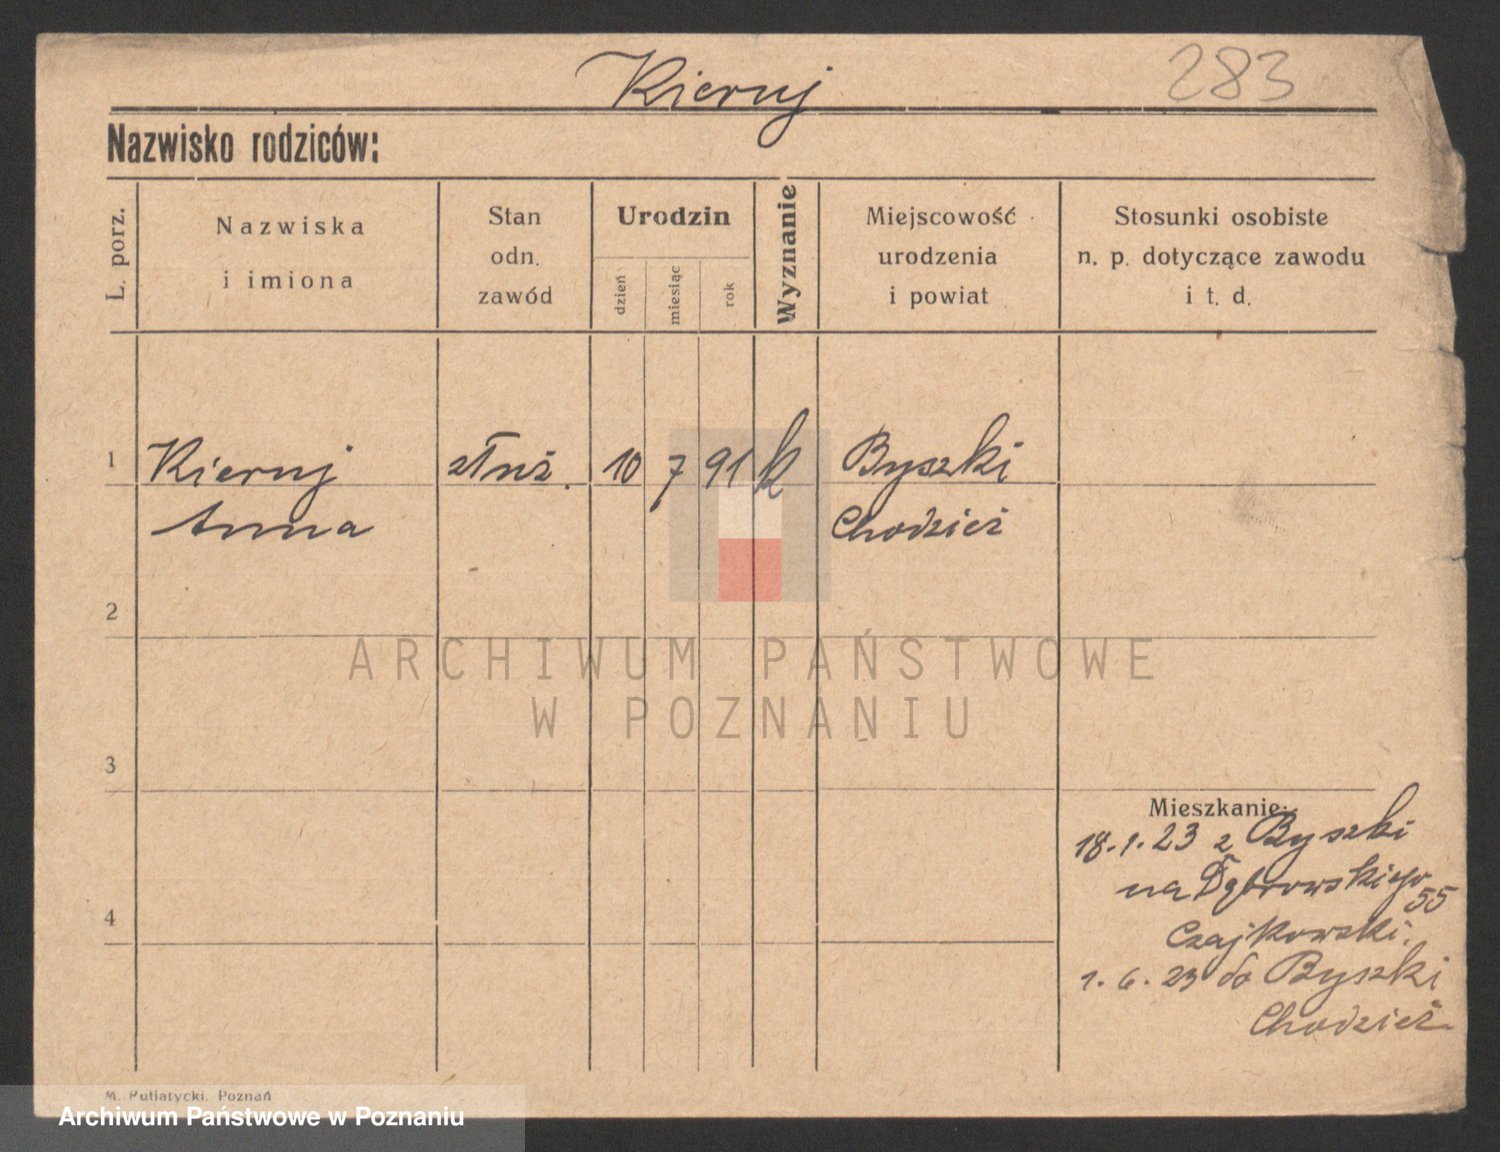 Kieruj 283
Nazwisko rodziców:
L. porz.
Nazwiska
i imiona
Stan
odn.
zawód
Urodzin
dzień
miesiąc
rok
Wyznanie
Miejscowość
urodzenia
i powiat
Stosunki osobiste
n. p. dotyczące zawodu
i t. d.
1 Kieruj służ. 10 7 91 k Byszki
Anna Chodzież
2
ARCHIWUM PAŃSTWOWE
W POZNANIU
3
Mieszkanie:
18.1.23 z Byszki
na Dąbrowskiego 55
4
Czajkowski.
1.6.23 do Byszki
Chodzież
M. Putiatycki, Poznań
Archiwum Państwowe w Poznaniu